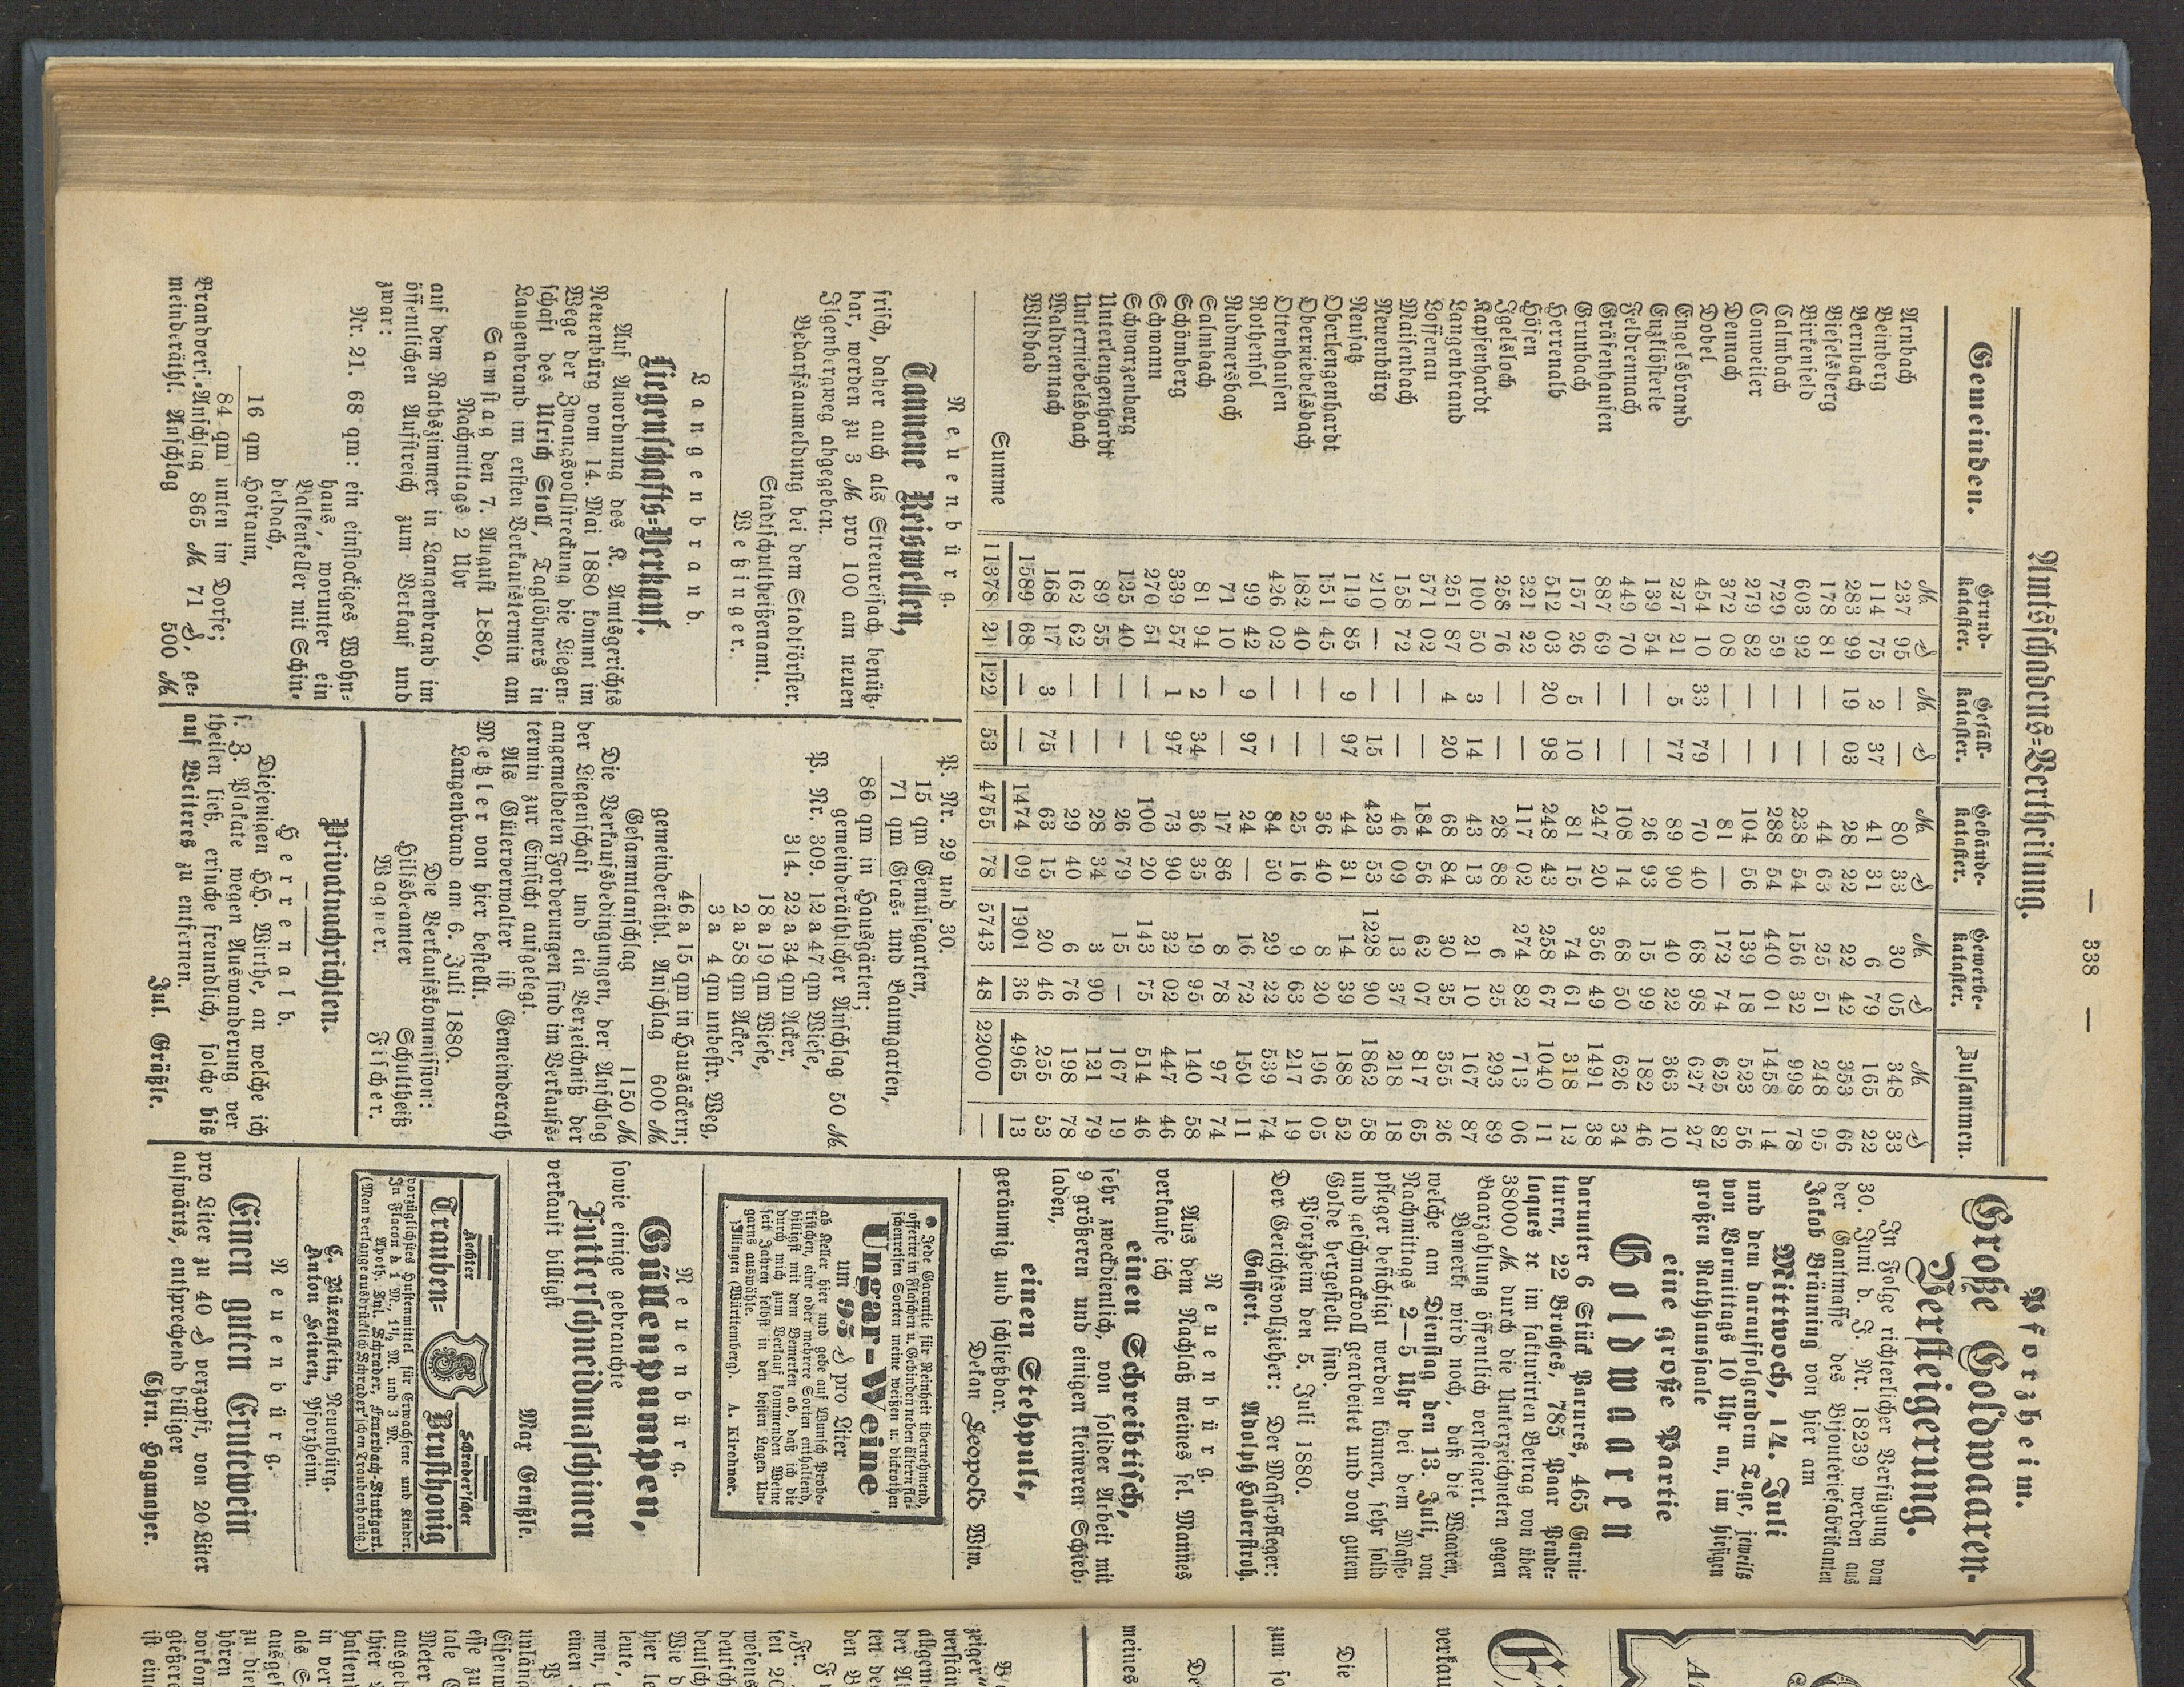 — 338 —
Amtsschadens-Vertheilung.
Gemeinden. Grund-kataster. Gefäll-kataster. Gebäude-kataster. Gewerbe-kataster. Zusammen.
M. ₰ M. ₰ M. ₰ M. ₰ M. ₰
Arnbach 237 95 — — 80 33 30 05 348 33
Beinberg 114 75 2 37 41 31 6 79 165 22
Bernbach 283 99 19 03 28 22 22 42 353 66
Bieselsberg 178 81 — — 44 63 25 51 248 95
Birkenfeld 603 92 — — 238 54 156 32 998 78
Calmbach 729 59 — — 288 54 440 01 1458 14
Conweiler 279 82 — — 104 56 139 18 523 56
Dennach 372 08 — — 81 — 172 74 625 82
Dobel 454 10 33 79 70 40 68 98 627 27
Engelsbrand 227 21 5 77 89 90 40 22 363 10
Enzklösterle 139 54 — — 26 93 15 99 182 46
Feldrennach 449 70 — — 108 14 68 50 626 34
Gräfenhausen 887 69 — — 247 20 356 49 1491 38
Grunbach 157 26 5 10 81 15 74 61 318 12
Herrenalb 512 03 20 98 248 43 258 67 1040 11
Höfen 321 22 — — 117 02 274 82 713 06
Igelsloch 258 76 — — 28 88 6 25 293 89
Kapfenhardt 100 50 3 14 43 13 21 10 167 87
Langenbrand 251 87 4 20 68 84 30 35 355 26
Loffenau 571 02 — — 184 56 62 07 817 65
Maisenbach 158 72 — — 46 09 13 37 218 18
Neuenbürg 210 — — 15 423 53 1228 90 1862 58
Neusatz 119 85 9 97 44 31 14 39 188 52
Oberlengenhardt 151 45 — — 36 40 8 20 196 05
Oberniebelsbach 182 40 — — 25 16 9 63 217 19
Ottenhausen 426 02 — — 84 50 29 22 539 74
Rothensol 99 42 9 97 24 — 16 72 150 11
Rudmersbach 71 10 — — 17 86 8 78 97 74
Salmbach 81 94 2 34 36 35 19 95 140 58
Schömberg 339 57 1 97 73 90 32 02 447 46
Schwann 270 51 — — 100 20 143 75 514 46
Schwarzenberg 125 40 — — 26 79 15 — 167 19
Unterlengenhardt 89 55 — — 28 34 3 90 121 79
Unterniebelsbach 162 62 — — 29 40 6 76 198 78
Waldrennach 168 17 3 75 63 15 20 46 255 53
Wildbad 1589 68 — — 1474 09 1901 36 4965 13
Summe 11378 21 122 53 4755 78 5743 48 22000 —
Neuenbürg.
Tannene Reiswellen,
frisch, daher auch als Streureisach benütz-
bar, werden zu 3 M. pro 100 am neuen
Ilgenbergweg abgegeben.
Bedarfsanmeldung bei dem Stadtförster.
Stadtschultheißenamt.
Weßinger.
Langenbrand.
Liegenschafts-Verkauf.
Auf Anordnung des K. Amtsgerichts
Neuenbürg vom 14. Mai 1880 kommt im
Wege der Zwangsvollstreckung die Liegen-
schaft des Ulrich Stoll, Taglöhners in
Langenbrand im ersten Verkaufstermin am
Samstag den 7. August 1880,
Nachmittags 2 Uhr
auf dem Rathszimmer in Langenbrand im
öffentlichen Aufstreich zum Verkauf und
zwar:
Nr. 21. 68 qm: ein einstockiges Wohn-
haus, worunter ein
Balkenkeller mit Schin-
deldach,
16 qm Hofraum,
84 qm unten im Dorfe;
Brandvers.-Anschlag 865 M. 71 ₰, ge-
meinderäthl. Anschlag 500 M.
P. Nr. 29 und 30.
15 qm Gemüsegarten,
71 qm Gras- und Baumgarten,
86 qm in Hausgärten;
gemeinderäthlicher Anschlag 50 M.
P. Nr. 309. 12 a 47 qm Wiese,
314. 22 a 34 qm Acker,
18 a 19 qm Wiese,
2 a 58 qm Acker,
3 a 4 qm unbestr. Weg,
46 a 15 qm in Hausäckern;
gemeinderäthl. Anschlag 600 M.
Gesammtanschlag 1150 M.
Die Verkaufsbedingungen, der Anschlag
der Liegenschaft und ein Verzeichniß der
angemeldeten Forderungen sind im Verkaufs-
termin zur Einsicht aufgelegt.
Als Güterverwalter ist Gemeinderath
Metzler von hier bestellt.
Langenbrand am 6. Juli 1880.
Die Verkaufskommission:
Hilfsbeamter Schultheiß
Wagner. Fischer.
Privatnachrichten.
Herrenalb.
Diejenigen HH. Wirthe, an welche ich
s. Z. Plakate wegen Auswanderung ver
theilen ließ, ersuche freundlich, solche bis
auf Weiteres zu entfernen.
Jul. Gräßle.
Pforzheim.
Große Goldwaaren-
Versteigerung.
In Folge richterlicher Verfügung vom
30. Juni d. J. Nr. 18239 werden aus
der Gantmasse des Bijouteriefabrikanten
Jakob Bräuning von hier am
Mittwoch, 14. Juli
und dem darauffolgendem Tage, jeweils
von Vormittags 10 Uhr an, im hiesigen
großen Rathhaussaale
eine große Partie
Goldwaaren
darunter 6 Stück Parures, 465 Garni-
turen, 22 Broches, 785 Paar Pende-
loques ꝛc. im fakturirten Betrag von über
38000 M. durch die Unterzeichneten gegen
Baarzahlung öffentlich versteigert.
Bemerkt wird noch, daß die Waaren,
welche am Dienstag den 13. Juli, von
Nachmittags 2—5 Uhr bei dem Masse-
pfleger besichtigt werden können, sehr solid
und geschmackvoll gearbeitet und von gutem
Golde hergestellt sind.
Pforzheim den 5. Juli 1880.
Der Gerichtsvollzieher: Der Massepfleger:
Gassert. Adolph Haberstroh.
Neuenbürg.
Aus dem Nachlaß meines sel. Mannes
verkaufe ich
einen Schreibtisch,
sehr zweckdienlich, von solider Arbeit mit
9 größeren und einigen kleineren Schieb-
laden,
einen Stehpult,
geräumig und schließbar.
Dekan Leopold Wtw.
Jede Garantie für Reinheit übernehmend,
offerire in Flaschen u. Gebinden neben ältern fla-
schenreifen Sorten meine weißen u. dickrothen
Ungar-Weine
um 95 ₰ pro Liter
ab Keller hier und gebe auf Wunsch Probe-
kistchen, eine oder mehrere Sorten enthaltend,
billigst mit dem Bemerken ab, daß ich die
durch mich zum Verkauf kommenden Weine
seit Jahren selbst in den besten Lagen Un-
garns auswähle.
Illingen (Württemberg). A. Kirchner.
Neuenbürg.
Güllenpumpen,
sowie einige gebrauchte
Futterschneidmaschinen
verkauft billigst
Max Genßle.
Aechter Schrader'scher
Trauben- Brusthonig
vorzüglichstes Hustenmittel für Erwachsene und Kinder.
In Flacon à 1 M., 1½ M. und 3 M.
Apoth. Jul. Schrader, Feuerbach-Stuttgart.
(Man verlange ausdrücklich Schrader'schen Traubenhonig.)
C. Büxenstein, Neuenbürg.
Anton Heinen, Pforzheim.
Neuenbürg.
Einen guten Erntewein
pro Liter zu 40 ₰ verzapft, von 20 Liter
aufwärts, entsprechend billiger
Chrn. Hagmayer.
verkau
Die
zum so
De
meines